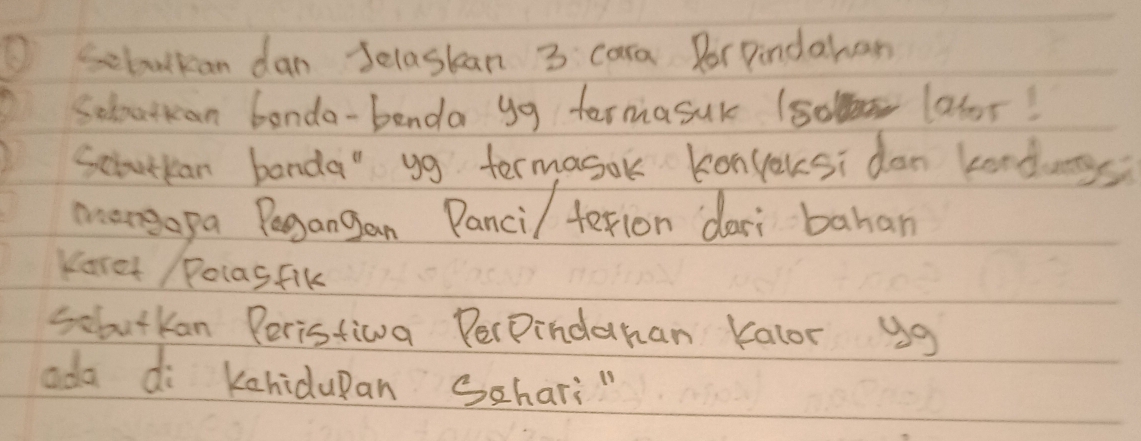 Sebutkan dan Jelaskan 3 cara Perpindahan
Sebutkan benda-benda yg termasuk Isolator!
Sebutkan benda" yg termasuk konveksi dan konduksi
mengapa Pegangan Panci/teflon dari bahan
Karet/Polastik
Sebutkan Peristiwa Perpindahan Kalor yg
ada di Kehidupan Sehari"